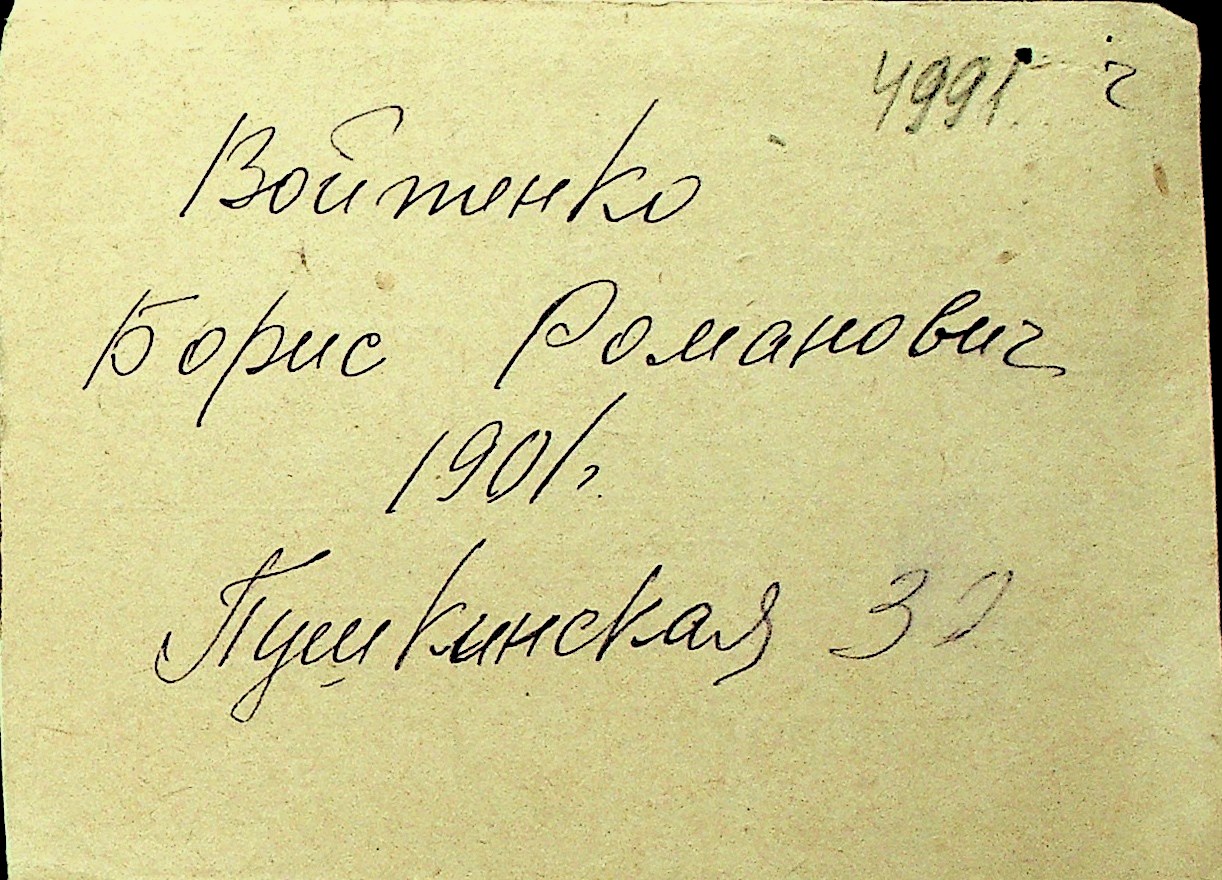 Войтенко
Борис Романович
1901г.
Пушкинская